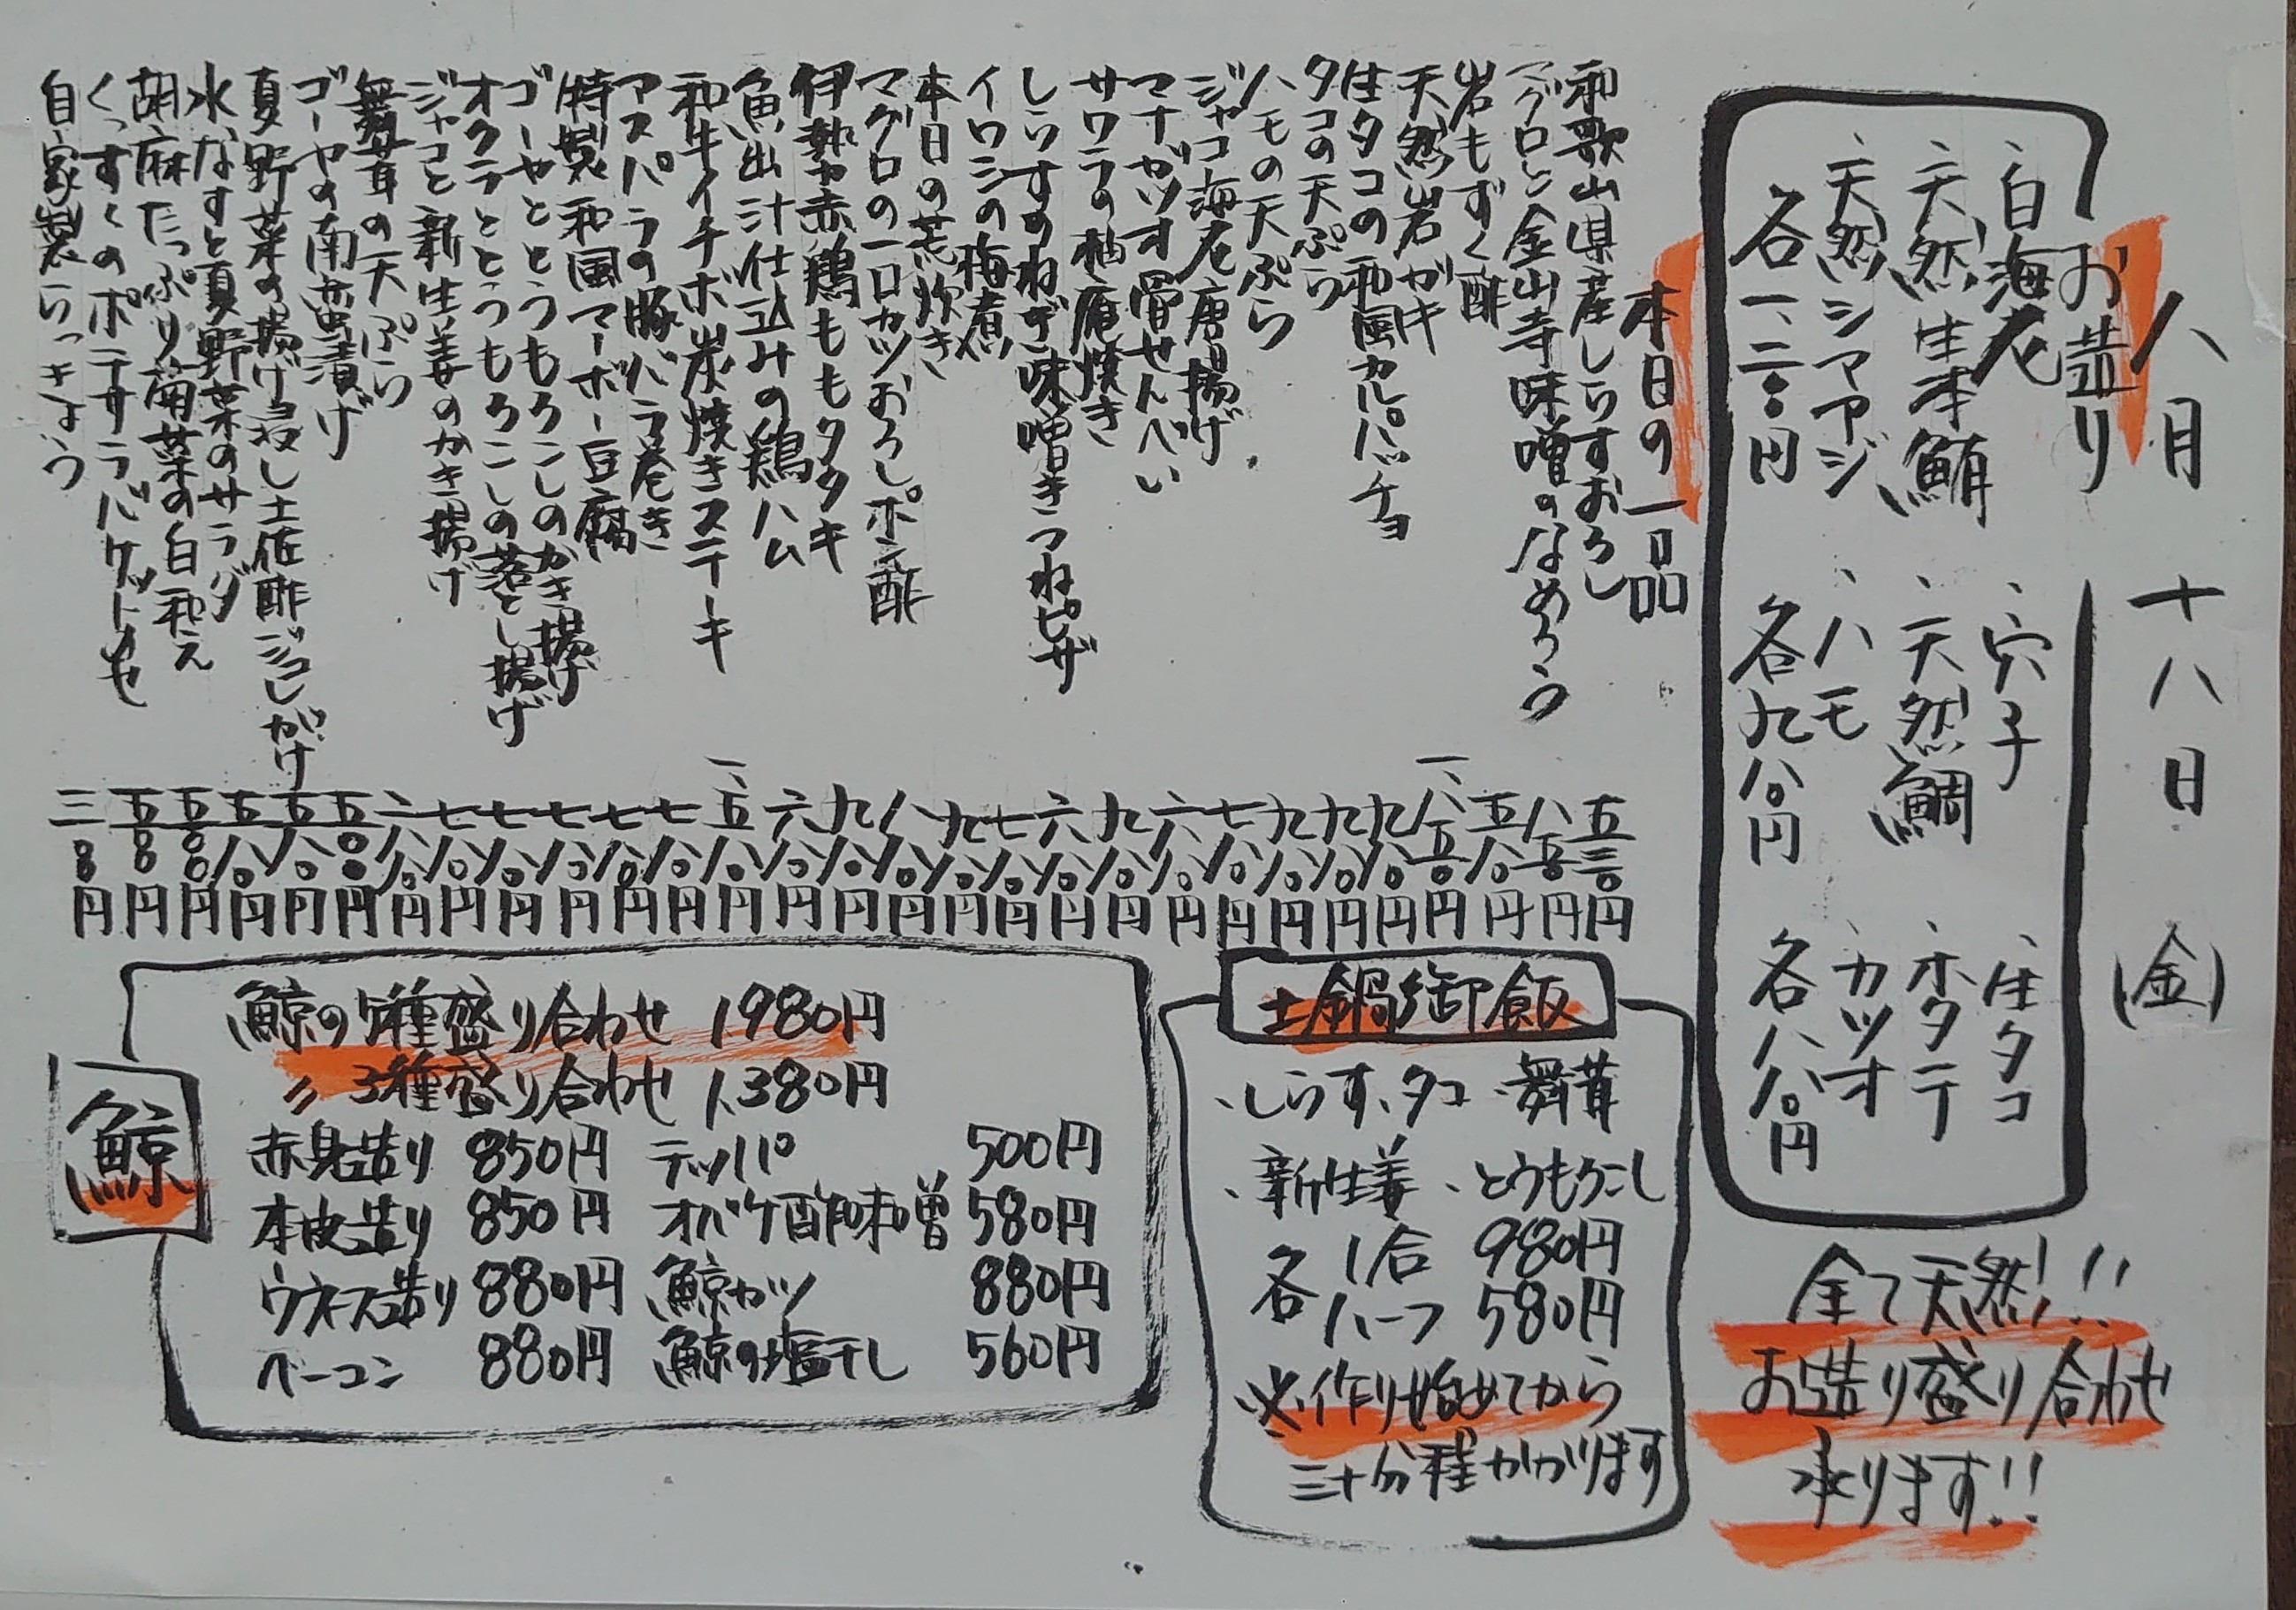 八月 十八日 (金)
お造り
、白海老 、穴子 、生タコ
、天然生本鮪 、天然鯛 、ホタテ
、天然シマアジ 、ハモ 、カツオ
各一、二八〇円 各九八〇円 各八八〇円
全て天然!!
お造り盛り合わせ
承ります!!
本日の一品
和歌山県産しらすおろし 五三〇円
マグロと金山寺味噌のなめろう 八五〇円
岩もずく酢 五八〇円
天然岩ガキ 一、八五〇円
生タコの和風カルパッチョ 九八〇円
タコの天ぷら 九八〇円
ハモの天ぷら 九八〇円
ジャコ海老唐揚げ 七八〇円
マナガツオ骨せんべい 六八〇円
サワラの柚庵焼き 九八〇円
しらすのねぎ味噌きつねピザ 六八〇円
イワシの梅煮 七八〇円
本日の荒炊き 九八〇円
マグロの一口カツおろしポン酢 八八〇円
伊勢赤鶏ももタタキ 九八〇円
魚出汁仕込みの鶏ハム 六八〇円
和牛イチボ炭焼きステーキ 一、五八〇円
アスパラの豚バラ巻き 七八〇円
特製和風マーボー豆腐 七八〇円
ゴーヤととうもろこしのかき揚げ 七八〇円
オクラととうもろこしの落とし揚げ 七八〇円
ジャコと新生姜のかき揚げ 七八〇円
舞茸の天ぷら 六八〇円
ゴーヤの南蛮漬け 五〇〇円
夏野菜の揚げ浸し土佐酢ジュレがけ 五八〇円
水なすと夏野菜のサラダ 五八〇円
胡麻たっぷり菊菜の白和え 五〇〇円
くっすくのポテサラバゲットも 五〇〇円
自家製らっきょう 三〇〇円
土鍋御飯
、しらす、タコ 、舞茸
、新生姜 、とうもろこし
各 1合 980円
ハーフ 580円
※作り始めてから
三十分程かかります
鯨
鯨の5種盛り合わせ 1980円
〃 3種盛り合わせ 1,380円
赤身造り 850円 テッパ 500円
本皮造り 850円 オバケ酢味噌 580円
ウネス造り 880円 鯨カツ 880円
ベーコン 880円 鯨の塩干し 560円